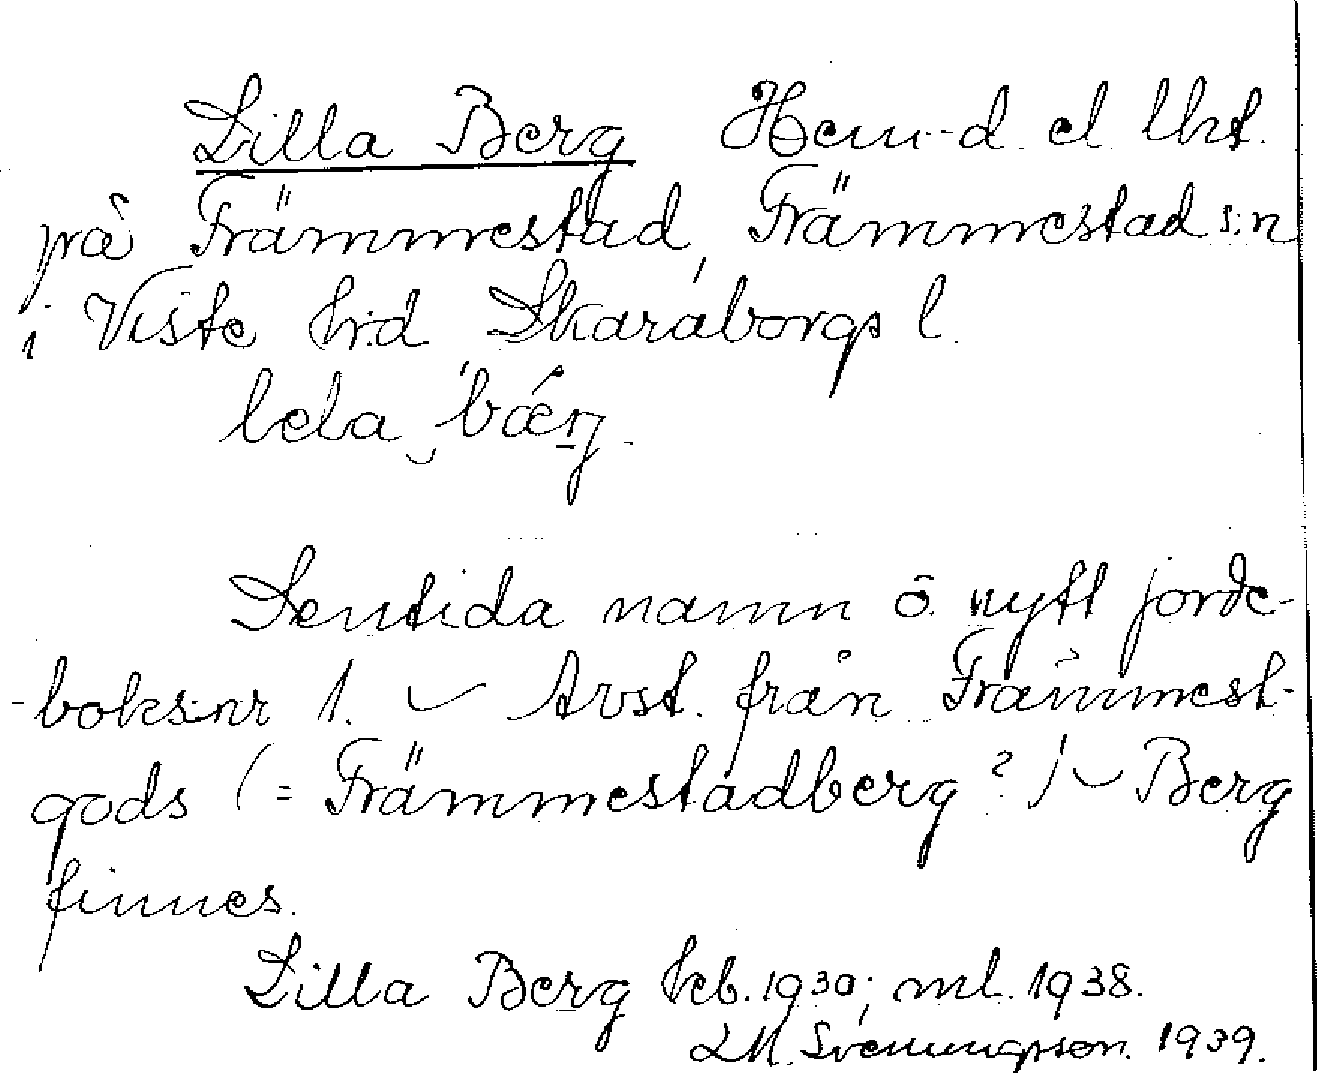 Lilla Berg Hem-d. el lht.
på Främmestad, Främmestad s:n
i Viste hrd Skaraborgs l.
lela bǽrj.
Sentida namn å nytt jorde-
-boksnr 1. ~ Avst. från Främmest-
gods (= Främmestadberg?) ~ Berg
finnes.
Lilla Berg keb. 1930; ml. 1938.
LM. Svenungsson. 1939.